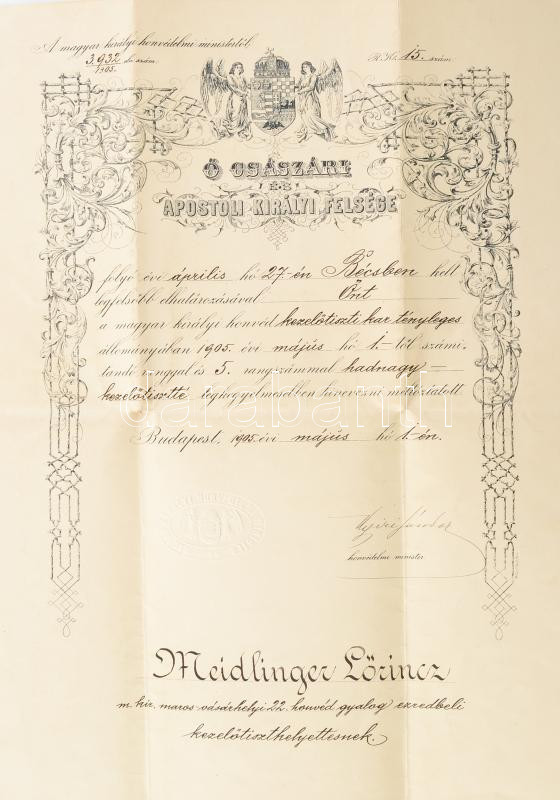 A magyar királyi honvédelmi ministertől.
3.932 dn. szám.
1905.
R. Kt. 15. szám
Ő CSÁSZÁRI
ÉS
APOSTOLI KIRÁLYI FELSÉGE
folyó évi április hó 27-én Bécsben kelt
legfelsőbb elhatározásával Önt
a magyar királyi honvéd kezelőtiszti kar tényleges
állományában 1905. évi május hó 1.-től számí-
tandó ranggal és 3. rangszámmal hadnagy-
kezelőtisztté legkegyelmesebben kinevezni méltóztatott.
Budapest, 1905. évi május hó 1.-én.
darabanth
honvédelmi minister
Meidlinger Lőrincz
m. kir. maros-vásárhelyi 22. honvéd gyalog ezredbeli
kezelőtiszthelyettesnek.